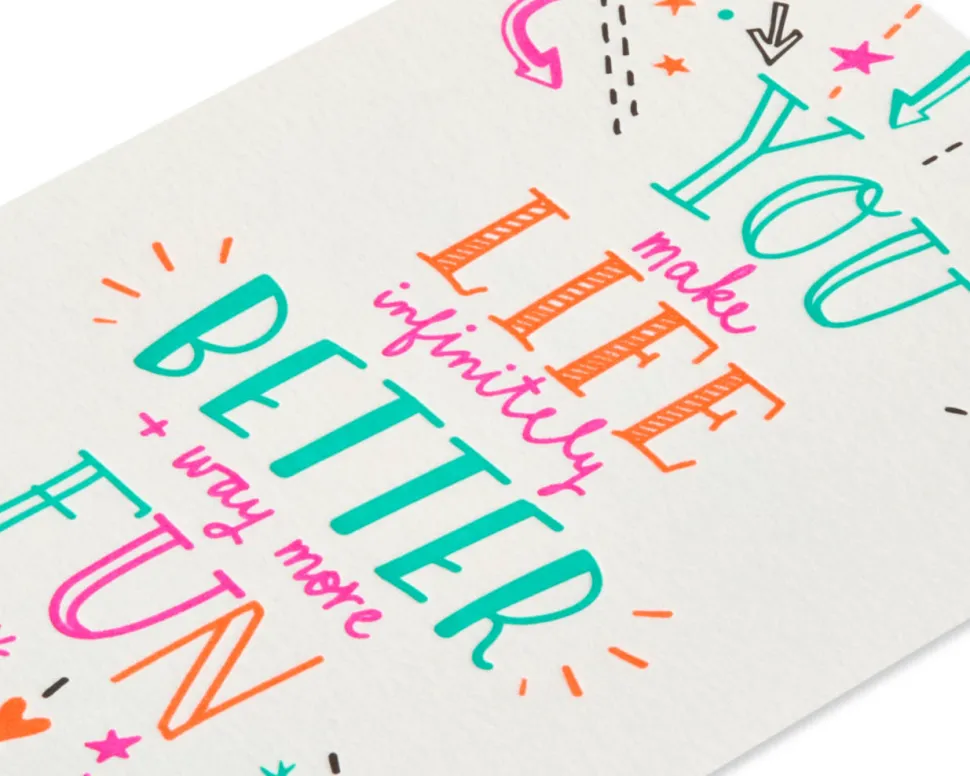 YOU
make
LIFE
infinitely
BETTER
+ way more
FUN